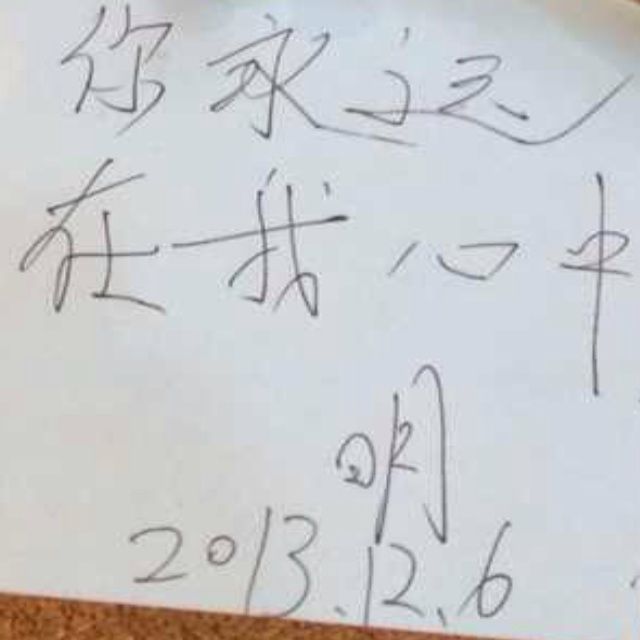 你永远
在我心中
明
2013.12.6